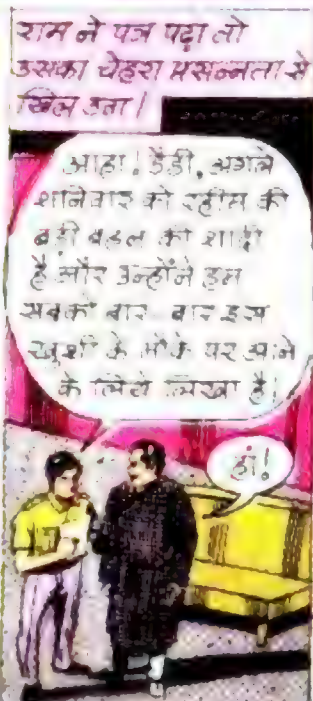 राम ने पत्र पढ़ा तो
उसका चेहरा प्रसन्नता से
खिल उठा!
आहा! डैडी, अगले
शनिवार को रहीम की
बड़ी बहन की शादी
है और उन्होंने हम
सबको बार-बार इस
खुशी के मौके पर आने
के लिये लिखा है!
हां!